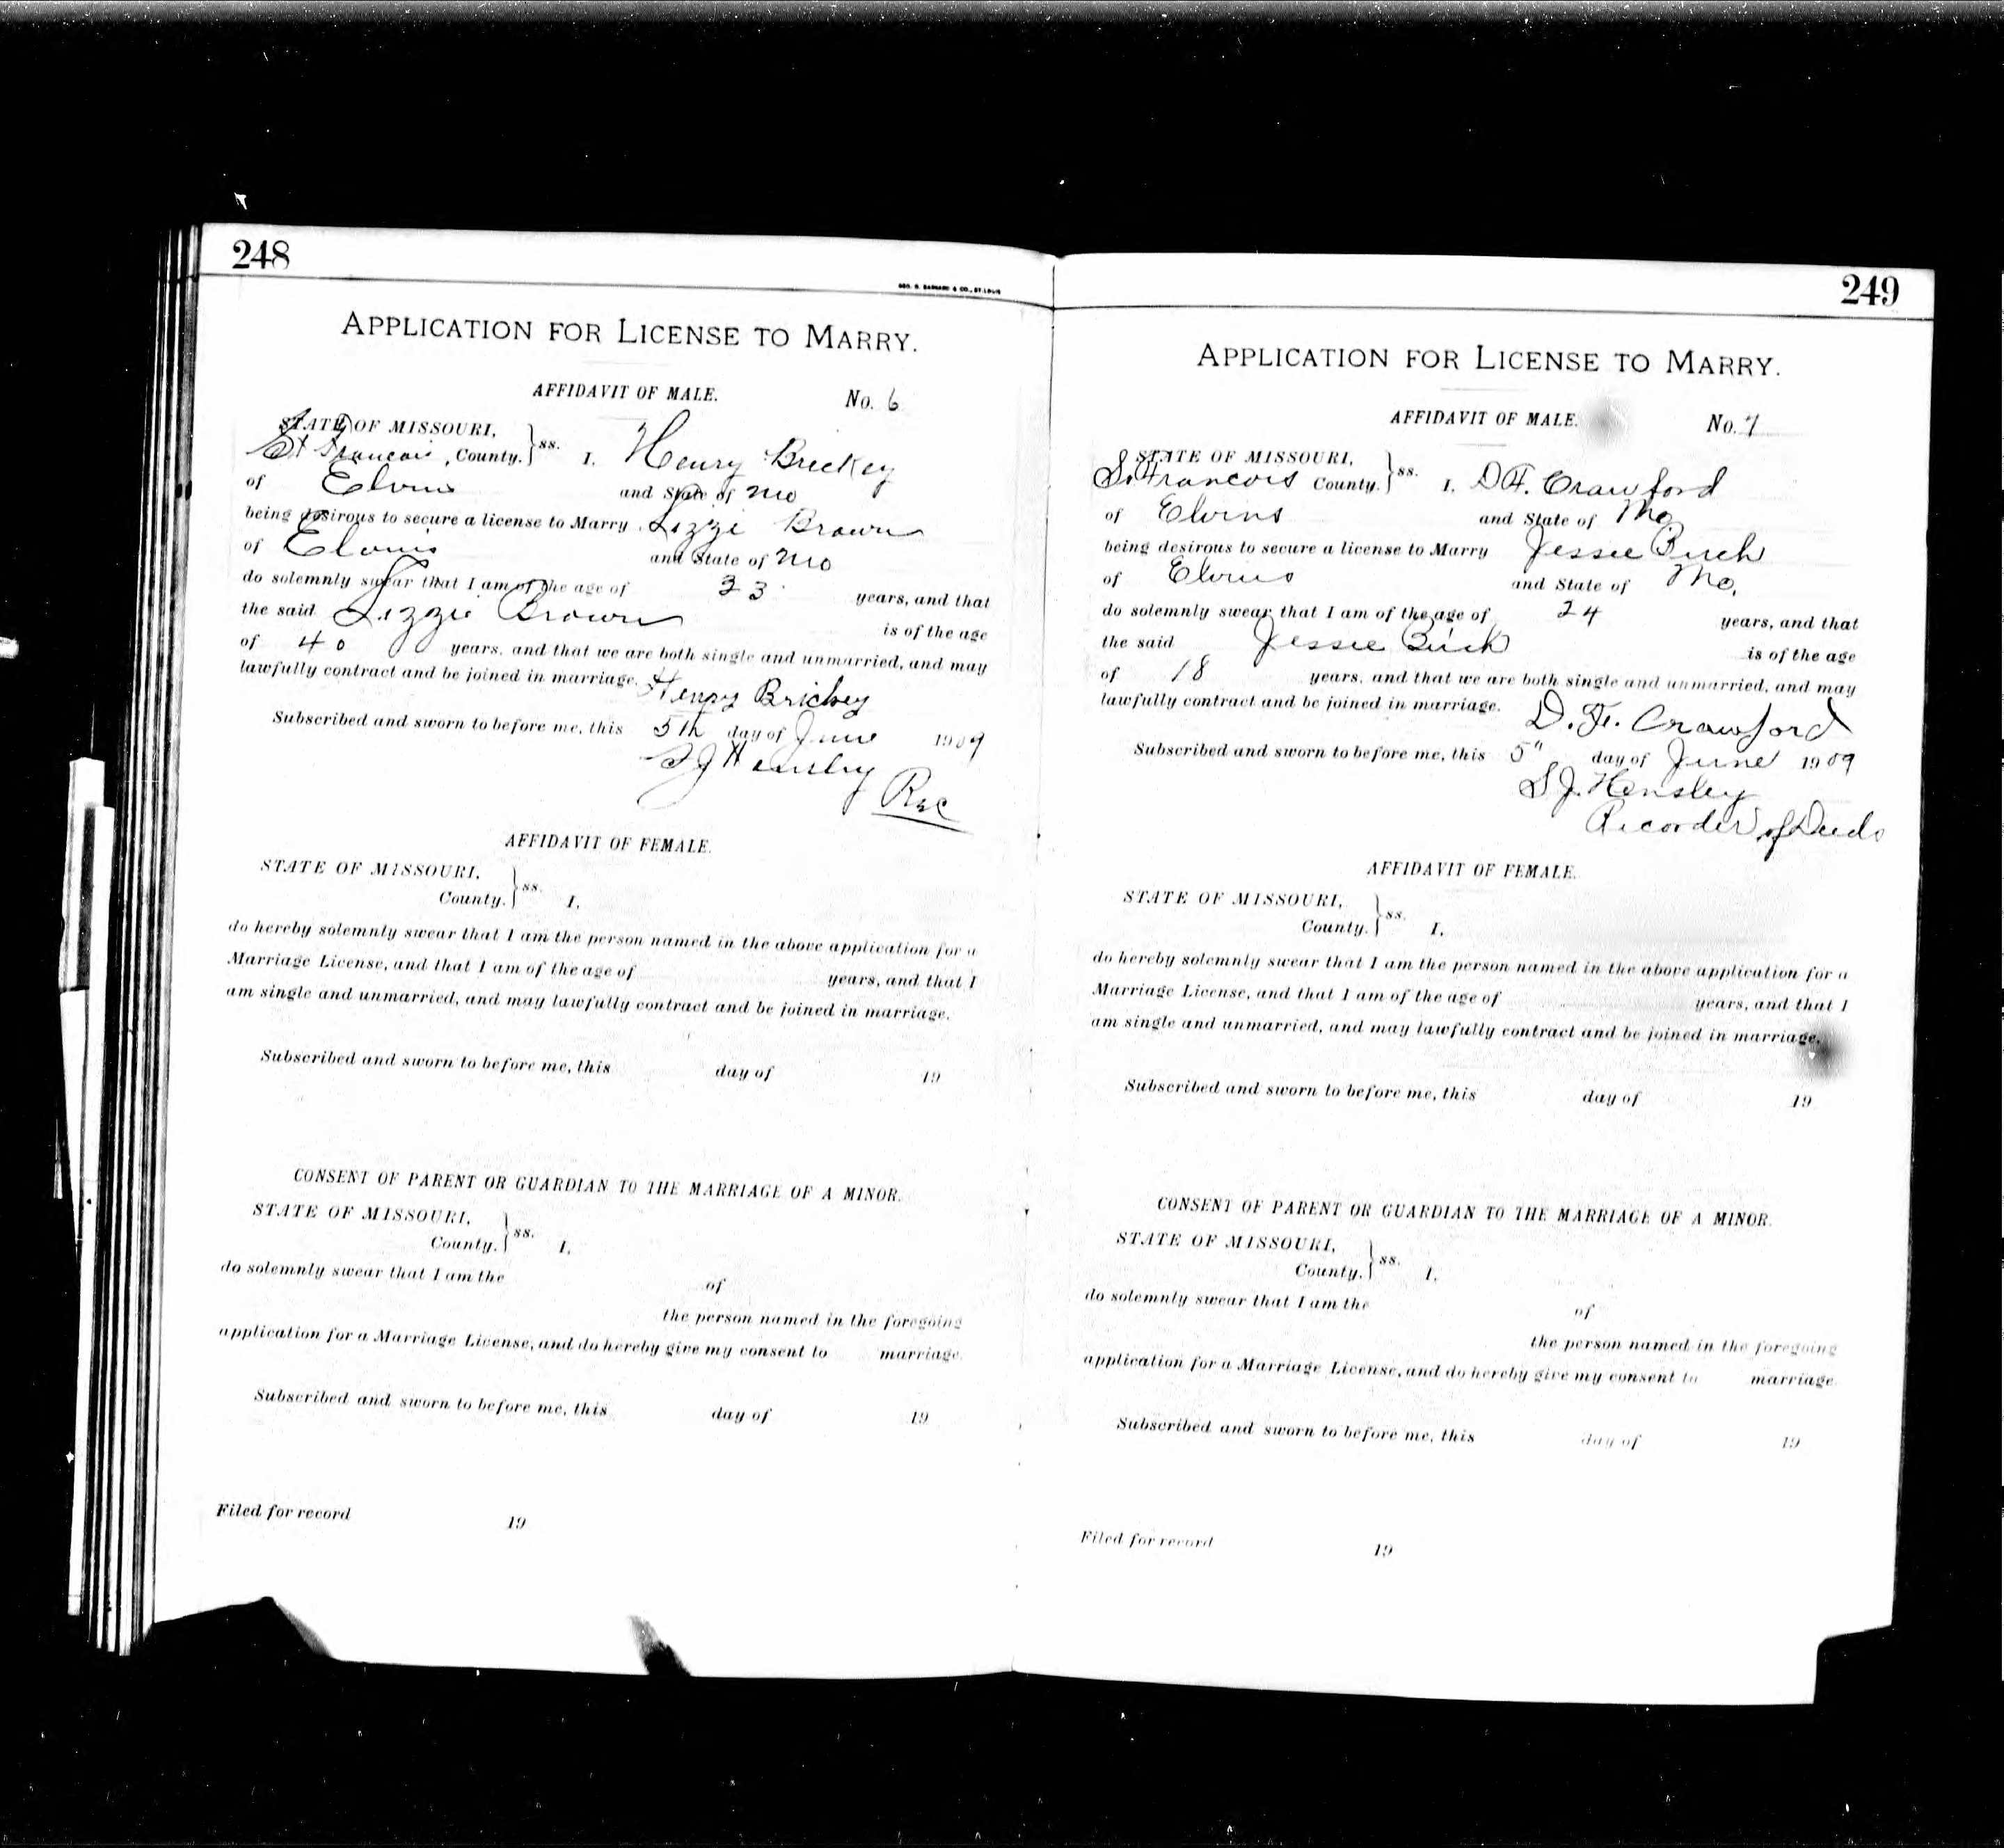 248
GEO. D. BARNARD & CO., ST. LOUIS
APPLICATION FOR LICENSE TO MARRY.
AFFIDAVIT OF MALE. No. 6
STATE OF MISSOURI,
St Francois, County. } ss. I, Henry Brickey
of Elvins and State of Mo
being desirous to secure a license to Marry Lizzi Brown
of Elvins and State of Mo
do solemnly swear that I am of the age of 33 years, and that
the said Lizzie Brown is of the age
of 40 years, and that we are both single and unmarried, and may
lawfully contract and be joined in marriage.
Henry Brickey
Subscribed and sworn to before me, this 5th day of June 1909
S J Hensley
Rec
AFFIDAVIT OF FEMALE.
STATE OF MISSOURI,
County. } ss. I,
do hereby solemnly swear that I am the person named in the above application for a
Marriage License, and that I am of the age of years, and that I
am single and unmarried, and may lawfully contract and be joined in marriage.
Subscribed and sworn to before me, this day of 19
CONSENT OF PARENT OR GUARDIAN TO THE MARRIAGE OF A MINOR.
STATE OF MISSOURI,
County. } ss. I,
do solemnly swear that I am the of
the person named in the foregoing
application for a Marriage License, and do hereby give my consent to marriage.
Subscribed and sworn to before me, this day of 19
Filed for record 19
249
APPLICATION FOR LICENSE TO MARRY.
AFFIDAVIT OF MALE. No. 7
STATE OF MISSOURI,
St. Francois County. } ss. I, D F. Crawford
of Elvins and State of Mo
being desirous to secure a license to Marry Jessee Buch
of Elvins and State of Mo.
do solemnly swear that I am of the age of 24 years, and that
the said Jessee Buch is of the age
of 18 years, and that we are both single and unmarried, and may
lawfully contract and be joined in marriage.
D. F. Crawford
Subscribed and sworn to before me, this 5" day of June 1909
S J. Hensley
Recorder of Deeds
AFFIDAVIT OF FEMALE.
STATE OF MISSOURI,
County. } ss. I,
do hereby solemnly swear that I am the person named in the above application for a
Marriage License, and that I am of the age of years, and that I
am single and unmarried, and may lawfully contract and be joined in marriage.
Subscribed and sworn to before me, this day of 19
CONSENT OF PARENT OR GUARDIAN TO THE MARRIAGE OF A MINOR.
STATE OF MISSOURI,
County. } ss. I,
do solemnly swear that I am the of
the person named in the foregoing
application for a Marriage License, and do hereby give my consent to marriage
Subscribed and sworn to before me, this day of 19
Filed for record 19